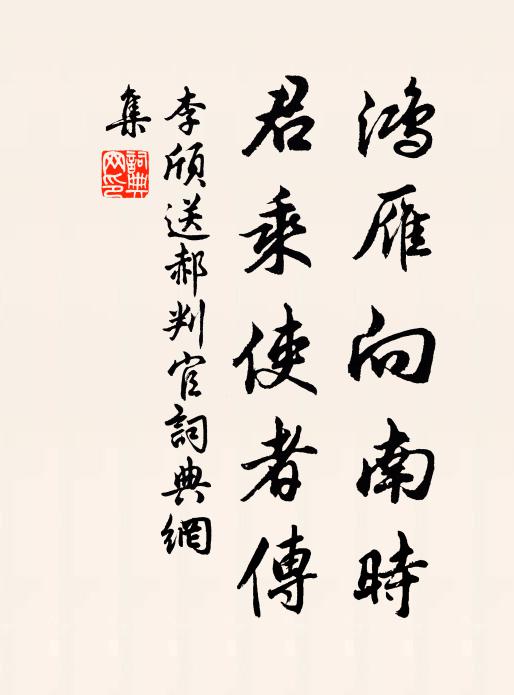 鴻雁向南時
君乘使者傳
李頎送郝判官詞典網
集
詞典
网印